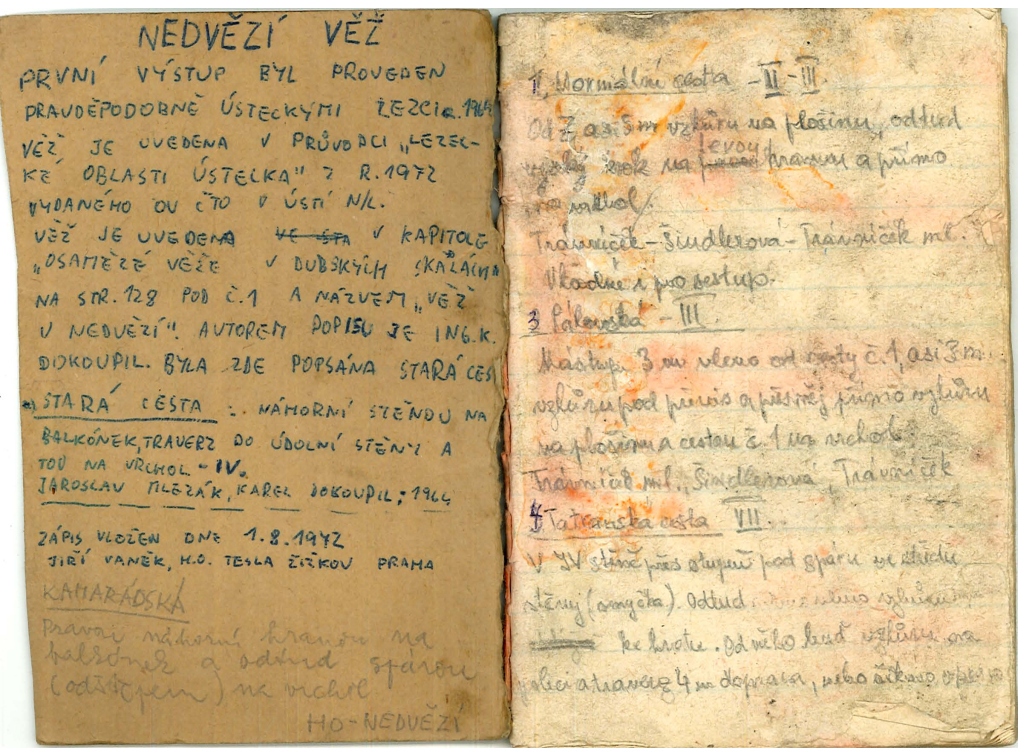 NEDVĚZÍ VĚŽ
PRVNÍ VÝSTUP BYL PROVEDEN
PRAVDĚPODOBNĚ ÚSTECKÝMI LEZCI
VĚŽ JE UVEDENA V PRŮVODCI „LEZEL-
KÉ OBLASTI ÚSTECKA" Z R.1972
VYDANÉHO OV ČTO V ÚSTÍ N/L.
VĚŽ JE UVEDENA V KAPITOLE
„OSAMĚLÉ VĚŽE V DUBSKÝCH SKALÁCH"
NA STR.128 POD Č.1 A NÁZVEM „VĚŽ
V NEDVĚZÍ". AUTOREM POPISU JE ING.K.
DOKOUPIL. BYLA ZDE POPSÁNA STARÁ CES
STARÁ CESTA : NÁHORNÍ STĚNOU NA
BALKÓNEK, TRAVERZ DO ÚDOLNÍ STĚNY A
TOU NA VRCHOL - IV.
JAROSLAV MLEZÁK, KAREL DOKOUPIL, 1964
ZÁPIS VLOŽEN DNE 1.8.1972
JIŘÍ VANĚK, H.O. TESLA ŽIŽKOV PRAHA
KAMARÁDSKÁ
Pravou náhorní hranou na
balkónek a odtud spárou
(odštěpem) na vrchol
HO-NEDVĚZÍ
1, Normální cesta - II - III
Od Z, asi 5 m vzhůru na plošinu, odtud
krok na levou hranu a přímo
na vrchol.
Trávníček - Šindlerová - Trávníček ml.
Vhodné i pro sestup.
3 Pálovská - III
Nástup 3 m vlevo od cesty č.1, asi 3 m
vzhůru pod převis a přímo vzhůru
na plošinu a cestou č.1 na vrchol.
Trávníček ml., Šindlerová, Trávníček
4 Tatranská cesta VII
V JV stěně přes stupeň pod spáru ve středu
stěny (smyčka). Odtud vlevo vzhůru
ke kruhu. Od něho buď vzhůru na
polici a traverz 4 m doprava, nebo